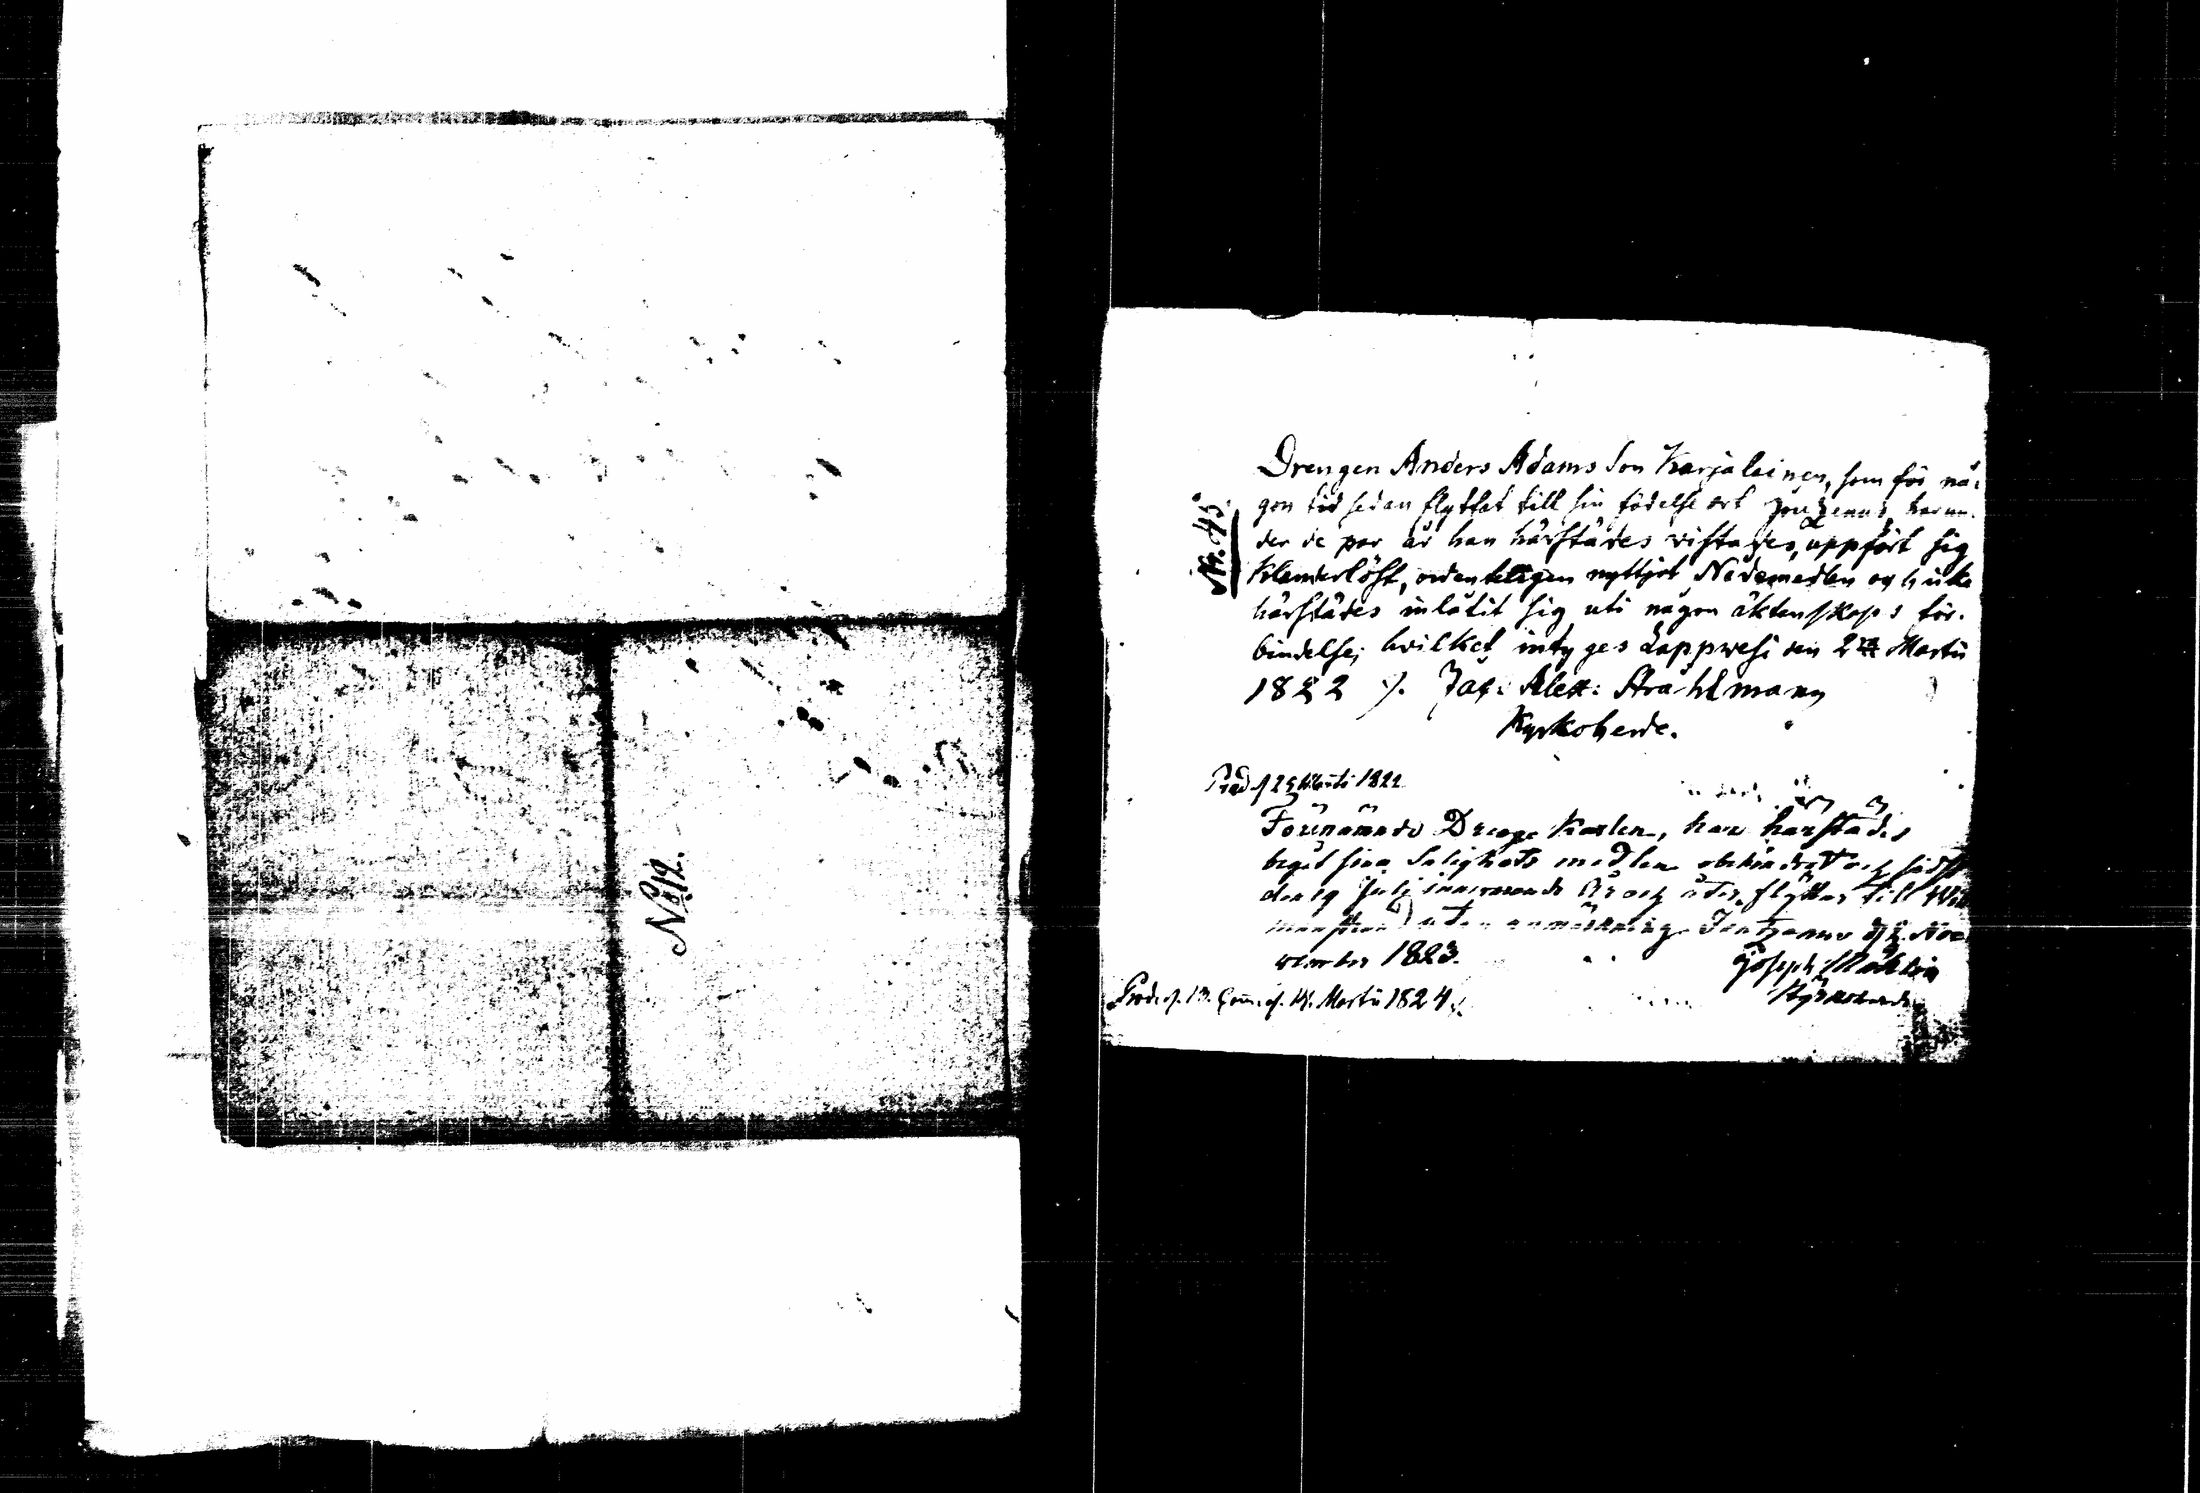 No 12.
Nr. 45.
Drengen Anders Adams Son Karjalainen, som för nå-
gon tid sedan flyttat till sin födelse ort Jouzenus, har un-
der de par år han härstädes vistades, uppfört sig
Klanderlöst, ordenteligen nyttjat Nådemedlen och icke
härstädes inlåtit sig uti någon äktenskaps för-
bindelse; hvilket intyges Lappwesi den 2 Martii
1822 ./. Jac: Alex: Strählmann
Kyrkoherde.
Prod. 1822
Förenämnde Drenge Karlen, har härstädes
begåt sina Salighets medlen obehindrat och sidst
den 19 Julii innevarande År och åter flyttar till
utan anmärkning. Jeutzeno d.
vember 1823. Joseph
Kyrkoherde
Prod. d. 13. d. 14. Martii 1824.